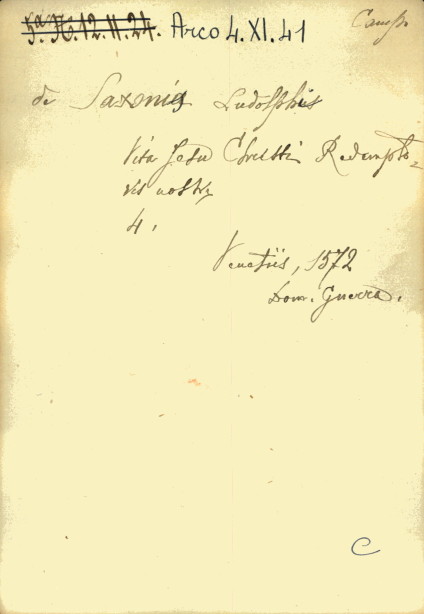 5ª 36.12.11.24. Arco 4.XI.41
Camp.
de Saxonia Ludolphus
Vita Jesu Christi Redempto=
ris nostri
4.
Venetiis, 1572
Dom. Guerra.
C